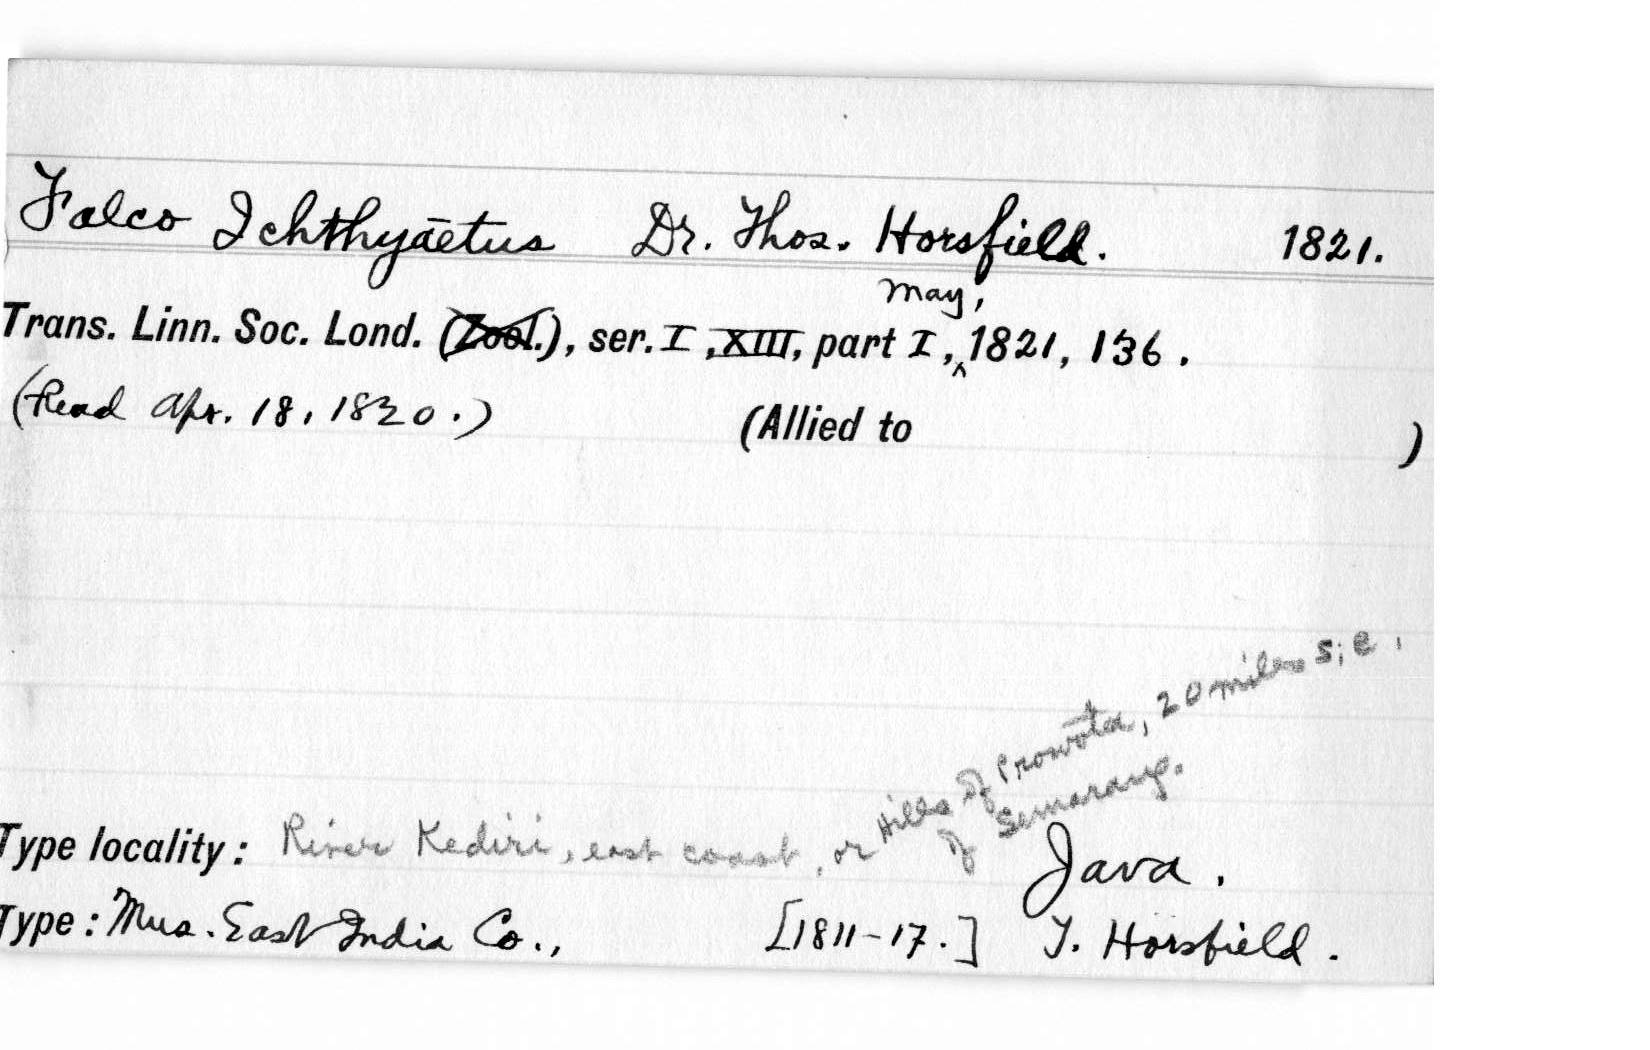 Falco Ichthyaëtus Dr. Thos. Horsfield. 1821.
May,
Trans. Linn. Soc. Lond. (Zool.), ser. I, XIII, part I, ^ 1821, 136.
(Read Apr. 18, 1820.) (Allied to )
Type locality: River Kediri, east coast, or Hills of Prowōta, 20 miles S.E.
of Semarang.
Java.
Type: Mus. East India Co., [1811-17.] T. Horsfield.